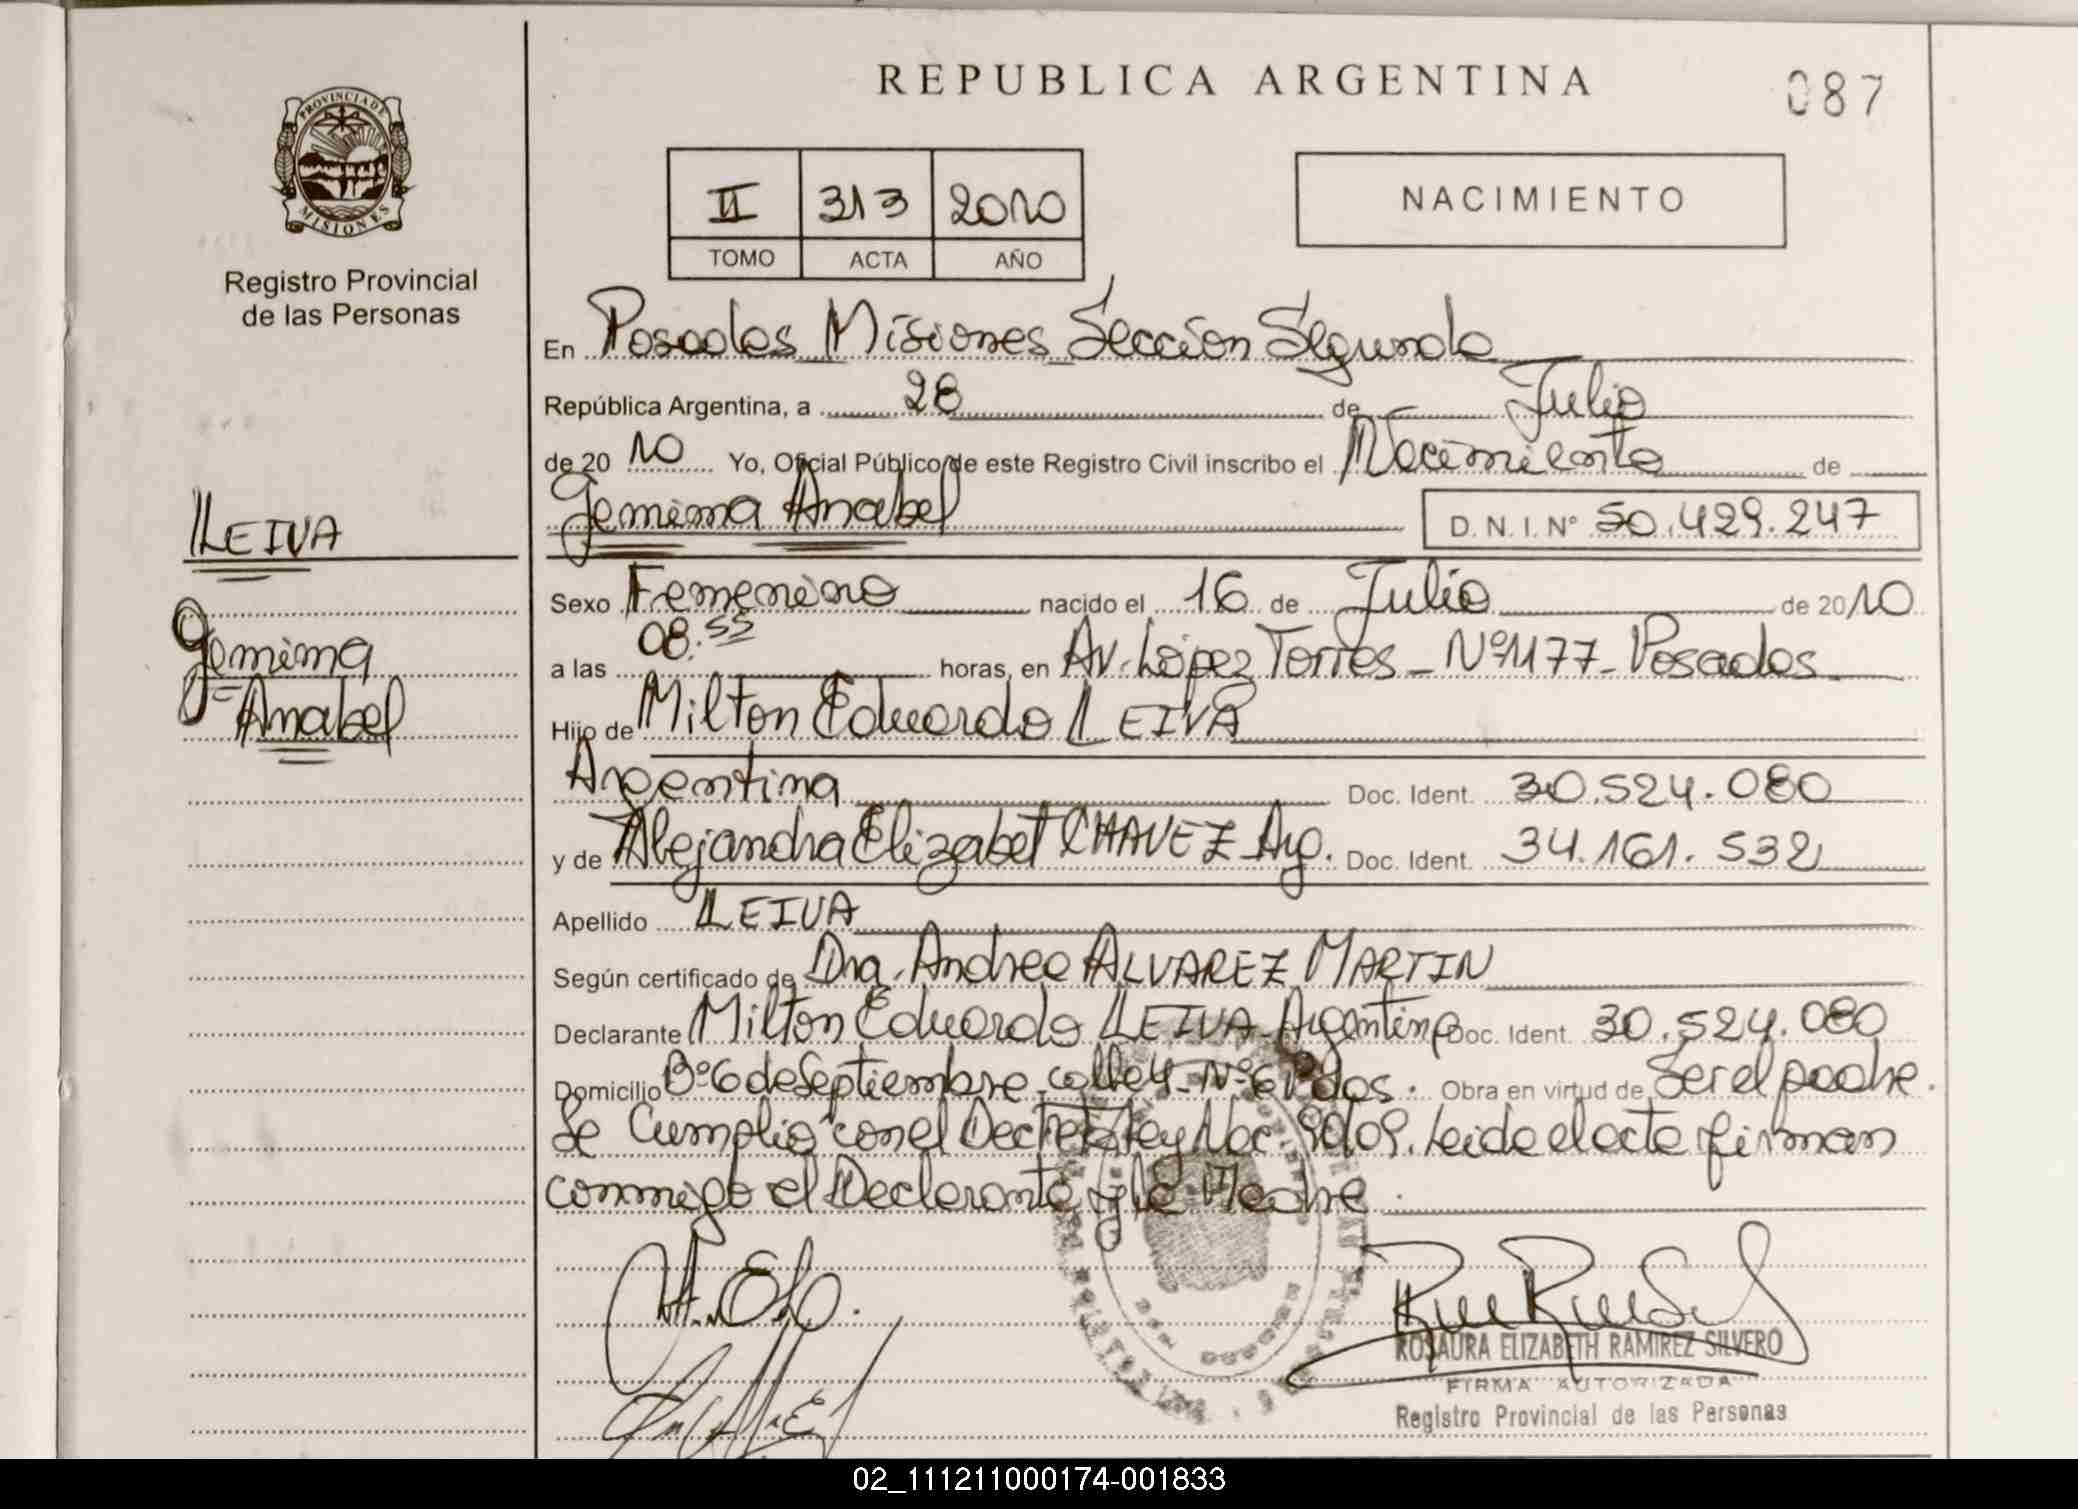 REPUBLICA ARGENTINA
087
PROVINCIA DE MISIONES
Registro Provincial
de las Personas
II 313 2010
TOMO ACTA AÑO
NACIMIENTO
En Posadas Misiones Sección Segunda
República Argentina, a 28 de Julio
de 2010 Yo, Oficial Público de este Registro Civil inscribo el Nacimiento de
Jemima Anabel D. N. I. Nº 50.429.247
LEIVA
Jemima
Anabel
Sexo Femenino nacido el 16 de Julio de 2010
a las 08:55 horas, en Av. López Torres - Nº 1177 - Posadas
Hijo de Milton Eduardo LEIVA
Argentina Doc. Ident. 30.524.080
y de Alejandra Elizabet CHAVEZ Arg. Doc. Ident. 34.161.532
Apellido LEIVA
Según certificado de Dra. Andrea ALVAREZ MARTIN
Declarante Milton Eduardo LEIVA - Argentino Doc. Ident. 30.524.080
Domicilio Bº 6 de Septiembre - calle 4 - Nº Obra en virtud de Ser el padre.
Se Cumplio con el Ley Nac. Leida el acta firman
conmigo el Declarante y la Madre.
ROSAURA ELIZABETH RAMIREZ SILVERO
FIRMA AUTORIZADA
Registro Provincial de las Personas
02_111211000174-001833